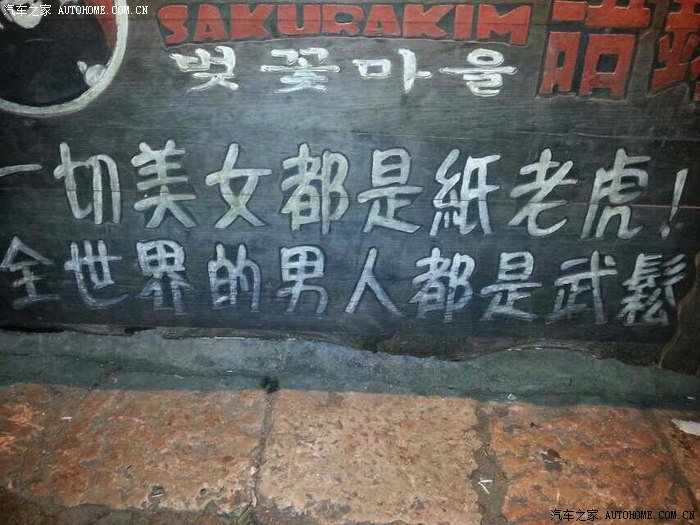 汽车之家 AUTOHOME.COM.CN
汽车之家 AUTOHOME.COM.CN
SAKURAKIM
벚꽃마을
一切美女都是紙老虎！
全世界的男人都是武鬆
汽车之家 AUTOHOME.COM.CN